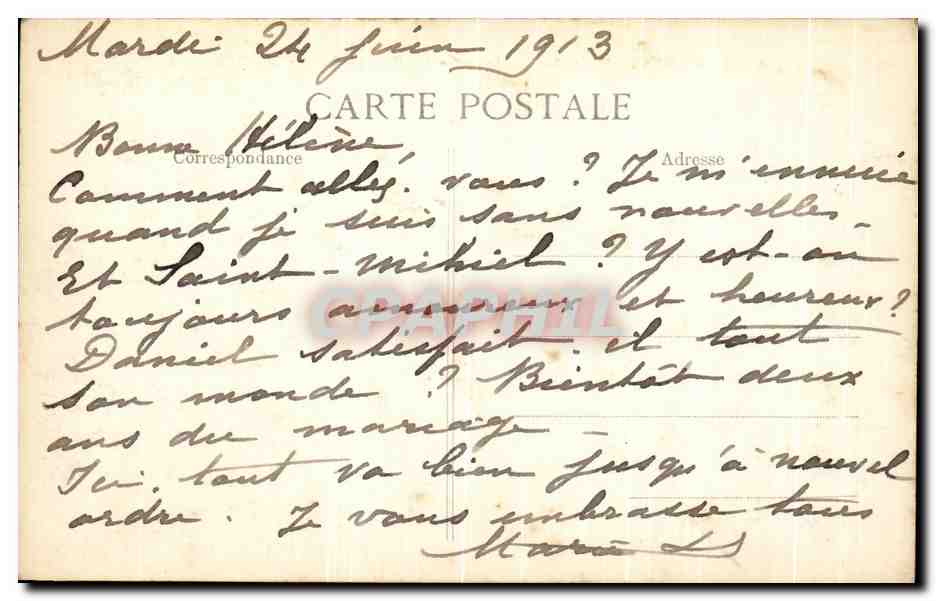 Mardi 24 juin 1913
CARTE POSTALE
Bonne Hélène,
Correspondance
Adresse
Comment allez-vous ? Je m'ennuie
quand je suis sans nouvelles -
Et Saint-Mihiel ? Y est-on
toujours amoureux et heureux ?
CPAPHIL
Daniel satisfait-il tout
son monde ? Bientôt deux
ans du mariage -
Ici, tout va bien jusqu'à nouvel
ordre. Je vous embrasse tous
Marie